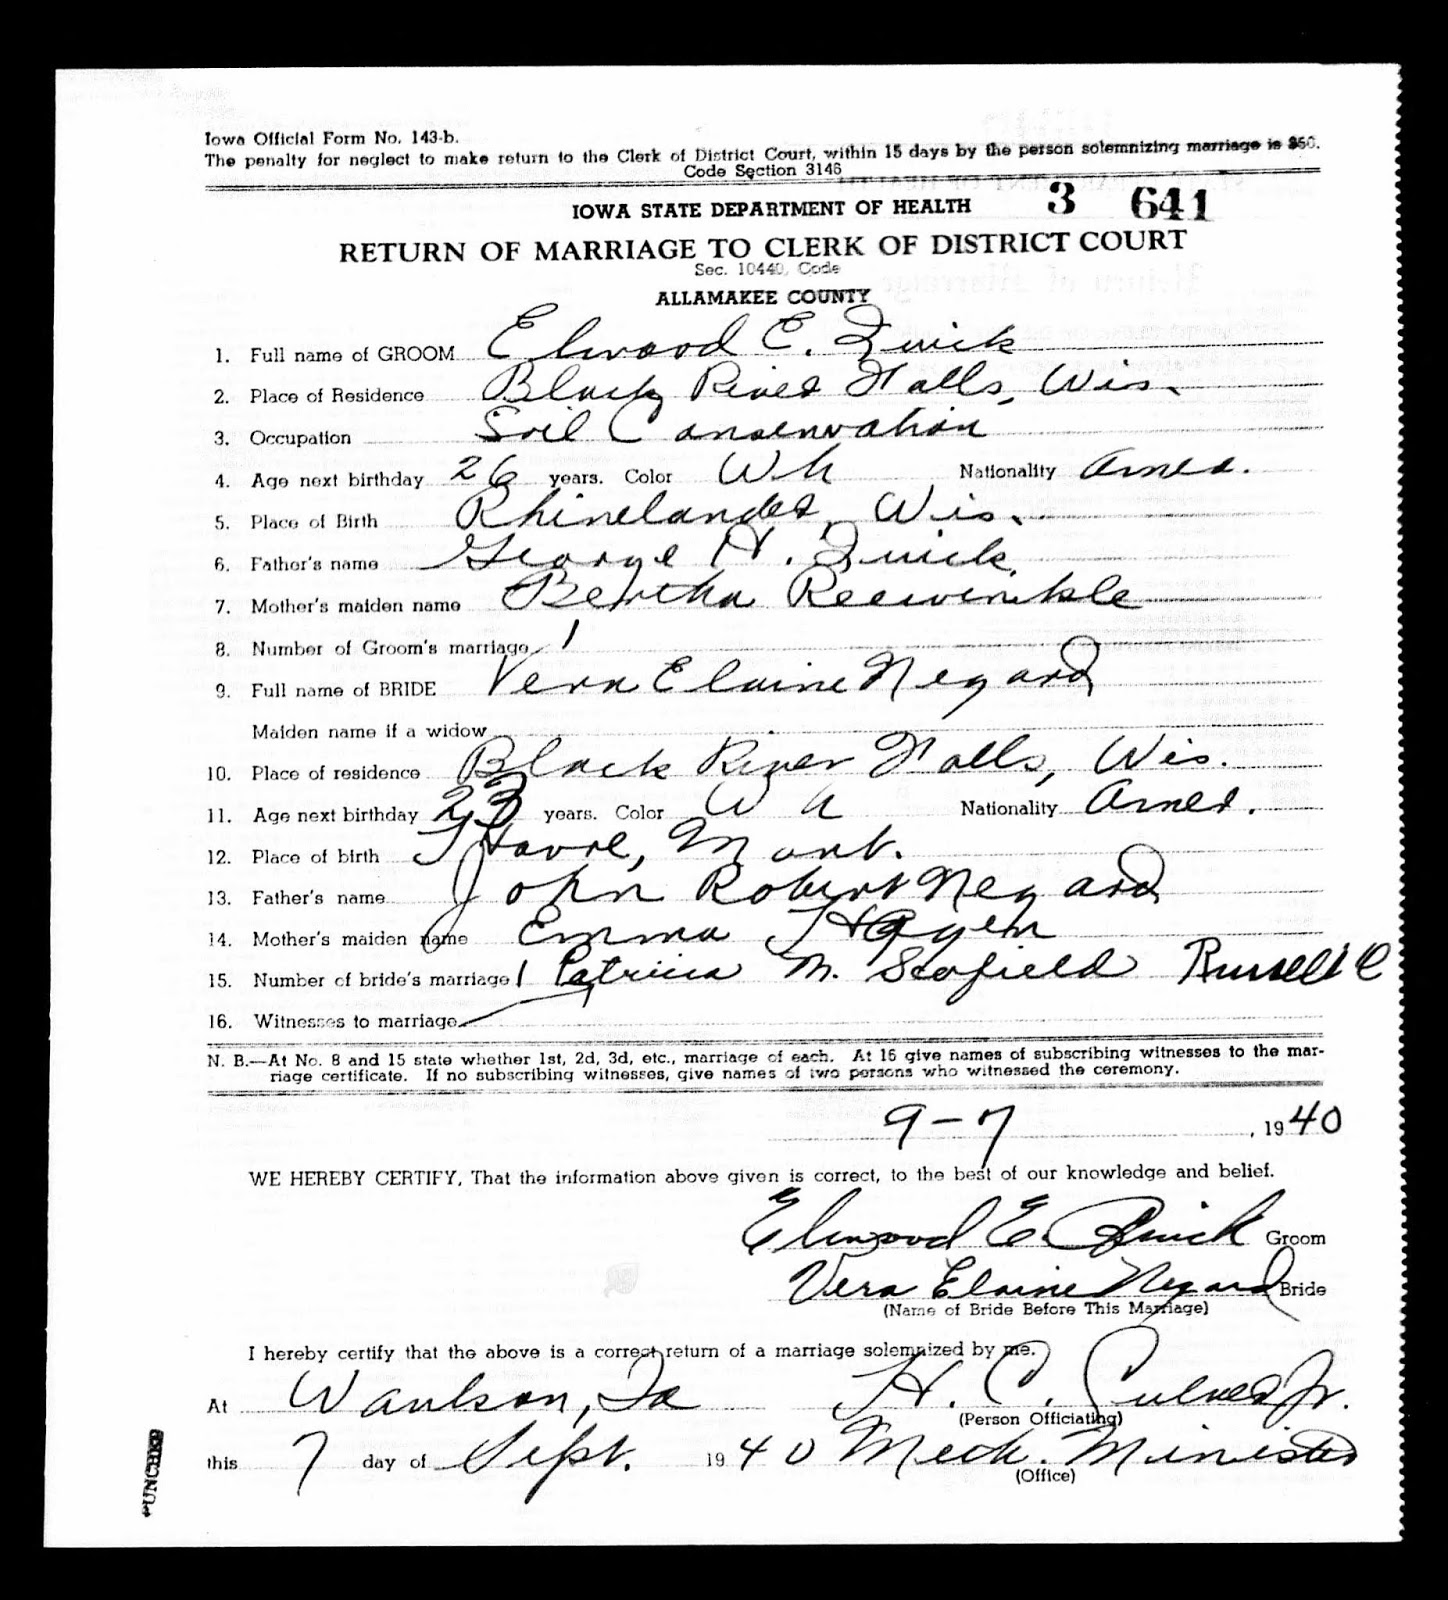 Iowa Official Form No. 143-b.
The penalty for neglect to make return to the Clerk of District Court, within 15 days by the person solemnizing marriage is $50.
Code Section 3146
IOWA STATE DEPARTMENT OF HEALTH 3 641
RETURN OF MARRIAGE TO CLERK OF DISTRICT COURT
Sec. 10440, Code
ALLAMAKEE COUNTY
1. Full name of GROOM Elwood E. Quick
2. Place of Residence Black River Falls, Wis.
3. Occupation Soil Conservation
4. Age next birthday 26 years. Color Wh Nationality Amer.
5. Place of Birth Rhinelander, Wis.
6. Father's name George H. Quick.
7. Mother's maiden name Bertha Reewinkle
8. Number of Groom's marriage 1
9. Full name of BRIDE Vera Elaine Negard
Maiden name if a widow
10. Place of residence Black River Falls, Wis.
11. Age next birthday 23 years. Color Wh Nationality Amer.
12. Place of birth Havre, Mont.
13. Father's name John Robert Negard
14. Mother's maiden name Emma Hagen
15. Number of bride's marriage 1 Patricia M. Scofield Russell C
16. Witnesses to marriage
N. B.—At No. 8 and 15 state whether 1st, 2d, 3d, etc., marriage of each. At 16 give names of subscribing witnesses to the mar-
riage certificate. If no subscribing witnesses, give names of two persons who witnessed the ceremony.
9-7, 1940
WE HEREBY CERTIFY, That the information above given is correct, to the best of our knowledge and belief.
Elwood E. Quick Groom
Vera Elaine Negard Bride
(Name of Bride Before This Marriage)
I hereby certify that the above is a correct return of a marriage solemnized by me.
At Waukon, Ia H. C. Culver Jr.
(Person Officiating)
this 7 day of Sept. 1940 Meth. Minister
(Office)